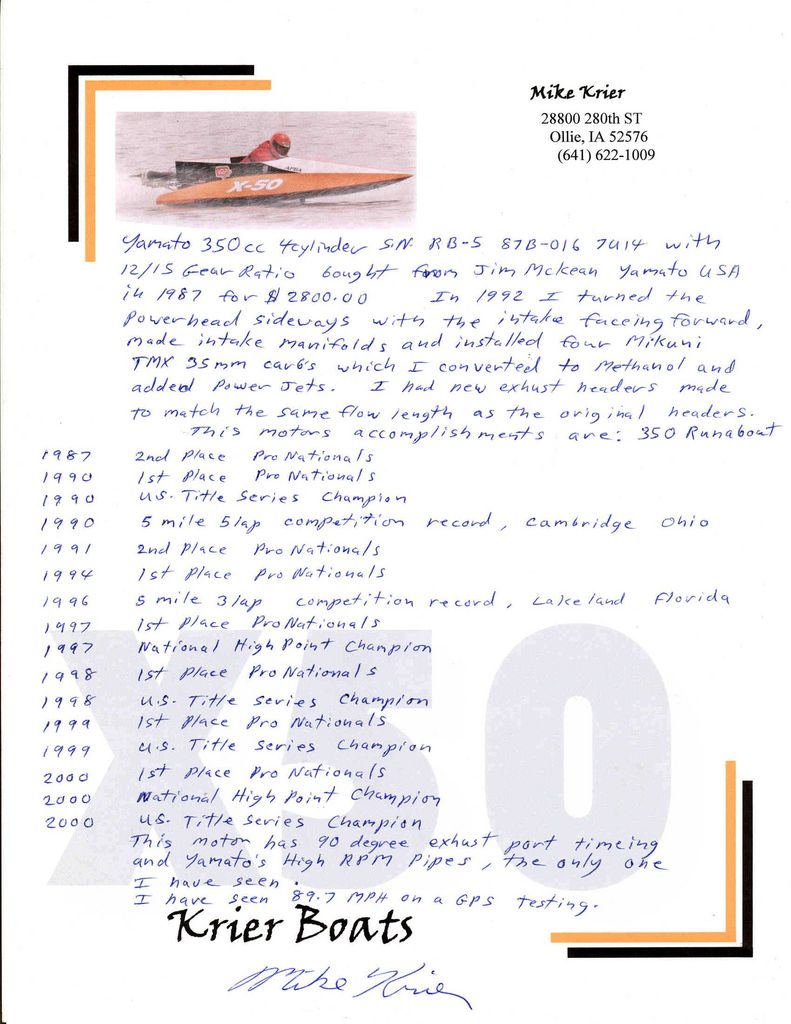 Mike Krier
28800 280th ST
Ollie, IA 52576
(641) 622-1009
APBA
X-50
Yamato 350cc 4cylinder S/N RB-5 87B-016 7U14 with
12/15 Gear Ratio bought from Jim McKean Yamato USA
in 1987 for $2800.00 In 1992 I turned the
Powerhead sideways with the intake faceing forward,
made intake manifolds and installed four Mikuni
TMX 35mm carb's which I converted to Methanol and
added Power Jets. I had new exhust headers made
to match the same flow length as the original headers.
This motors accomplishments are: 350 Runabout
1987 2nd Place Pro Nationals
1990 1st Place Pro Nationals
1990 U.S. Title Series Champion
1990 5 mile 5 lap competition record, Cambridge Ohio
1991 2nd Place Pro Nationals
1994 1st Place Pro Nationals
1996 5 mile 3 lap competition record, Lakeland Florida
1997 1st Place Pro Nationals
1997 National High Point Champion
1998 1st Place Pro Nationals
1998 U.S. Title Series Champion
1999 1st Place Pro Nationals
1999 U.S. Title Series Champion
2000 1st Place Pro Nationals
2000 National High Point Champion
2000 U.S. Title Series Champion
This motor has 90 degree exhust port timeing
and Yamato's High RPM Pipes, the only one
I have seen.
I have seen 89.7 MPH on a GPS testing.
X50
Krier Boats
Mike Krier